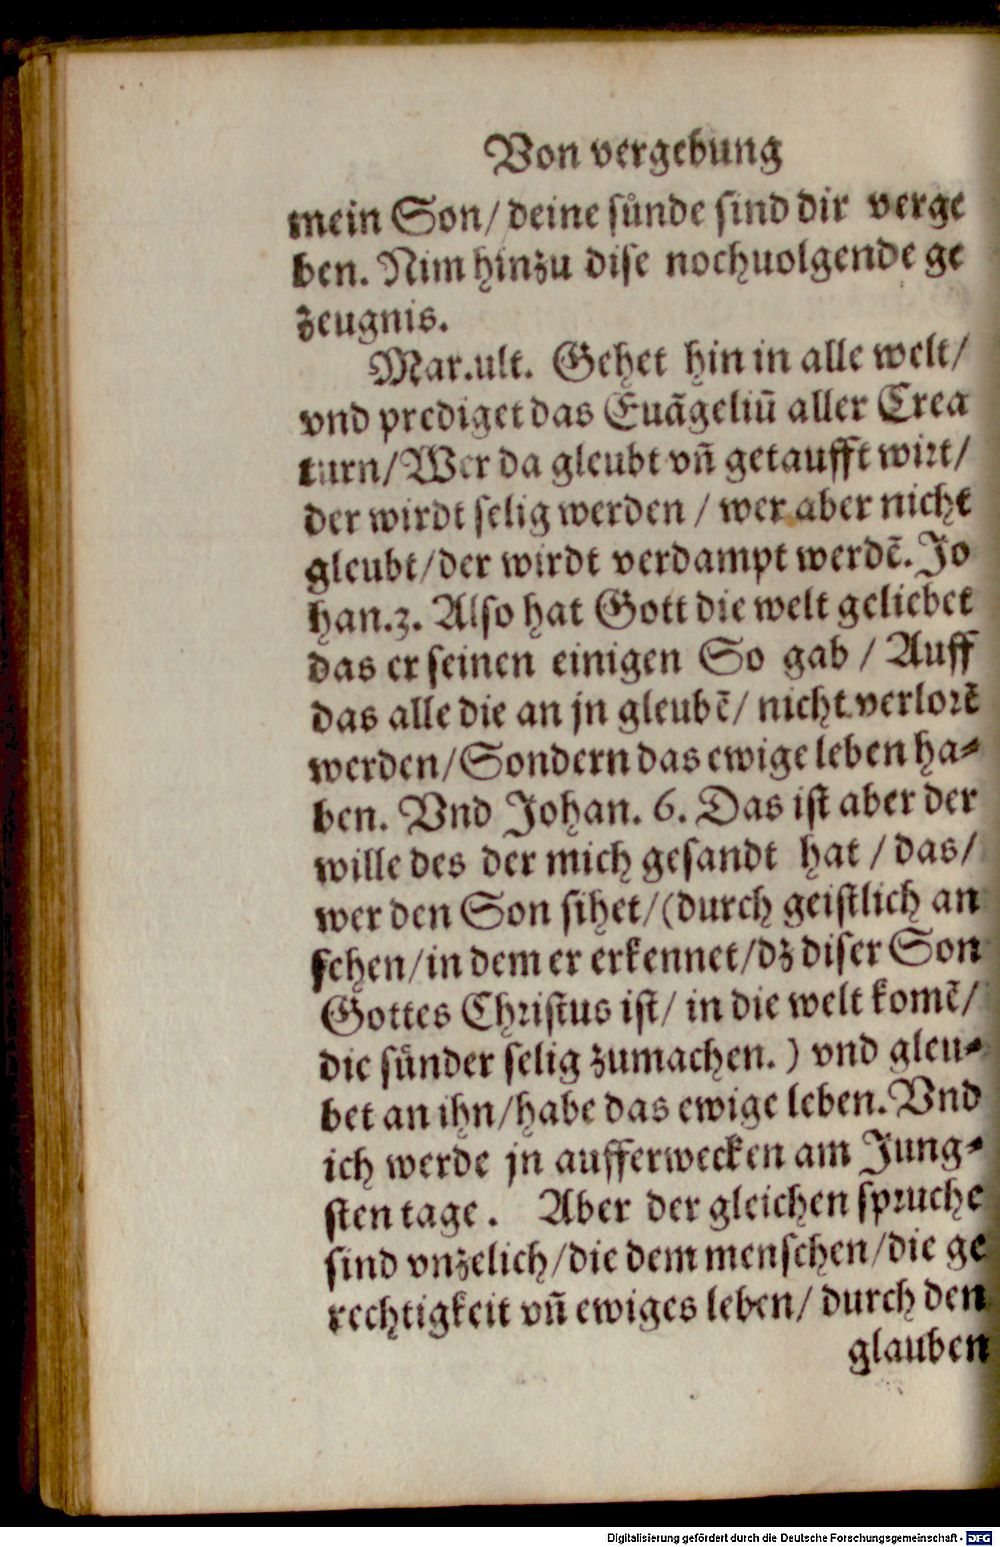 Von vergebung
mein Son/ deine sünde sind dir verge
ben. Nim hinzu dise nochuolgende ge
zeugnis.
Mar.ult. Gehet hin in alle welt/
vnd prediget das Euãgeliũ aller Crea
turn/ Wer da gleubt vñ getaufft wirt/
der wirdt selig werden / wer aber nicht
gleubt/ der wirdt verdampt werdẽ. Jo
han.3. Also hat Gott die welt geliebet
das er seinen einigen So gab / Auff
das alle die an jn gleubẽ/ nicht verlorẽ
werden/ Sondern das ewige leben ha⸗
ben. Vnd Johan. 6. Das ist aber der
wille des der mich gesandt hat / das/
wer den Son sihet/ (durch geistlich an
sehen/ in dem er erkennet/ dz diser Son
Gottes Christus ist/ in die welt komẽ/
die sünder selig zumachen. ) vnd gleu⸗
bet an ihn/ habe das ewige leben. Vnd
ich werde jn aufferwecken am Jung⸗
sten tage . Aber der gleichen spruche
sind vnzelich/ die dem menschen/ die ge
rechtigkeit vñ ewiges leben/ durch den
glauben
Digitalisierung gefördert durch die Deutsche Forschungsgemeinschaft - DFG